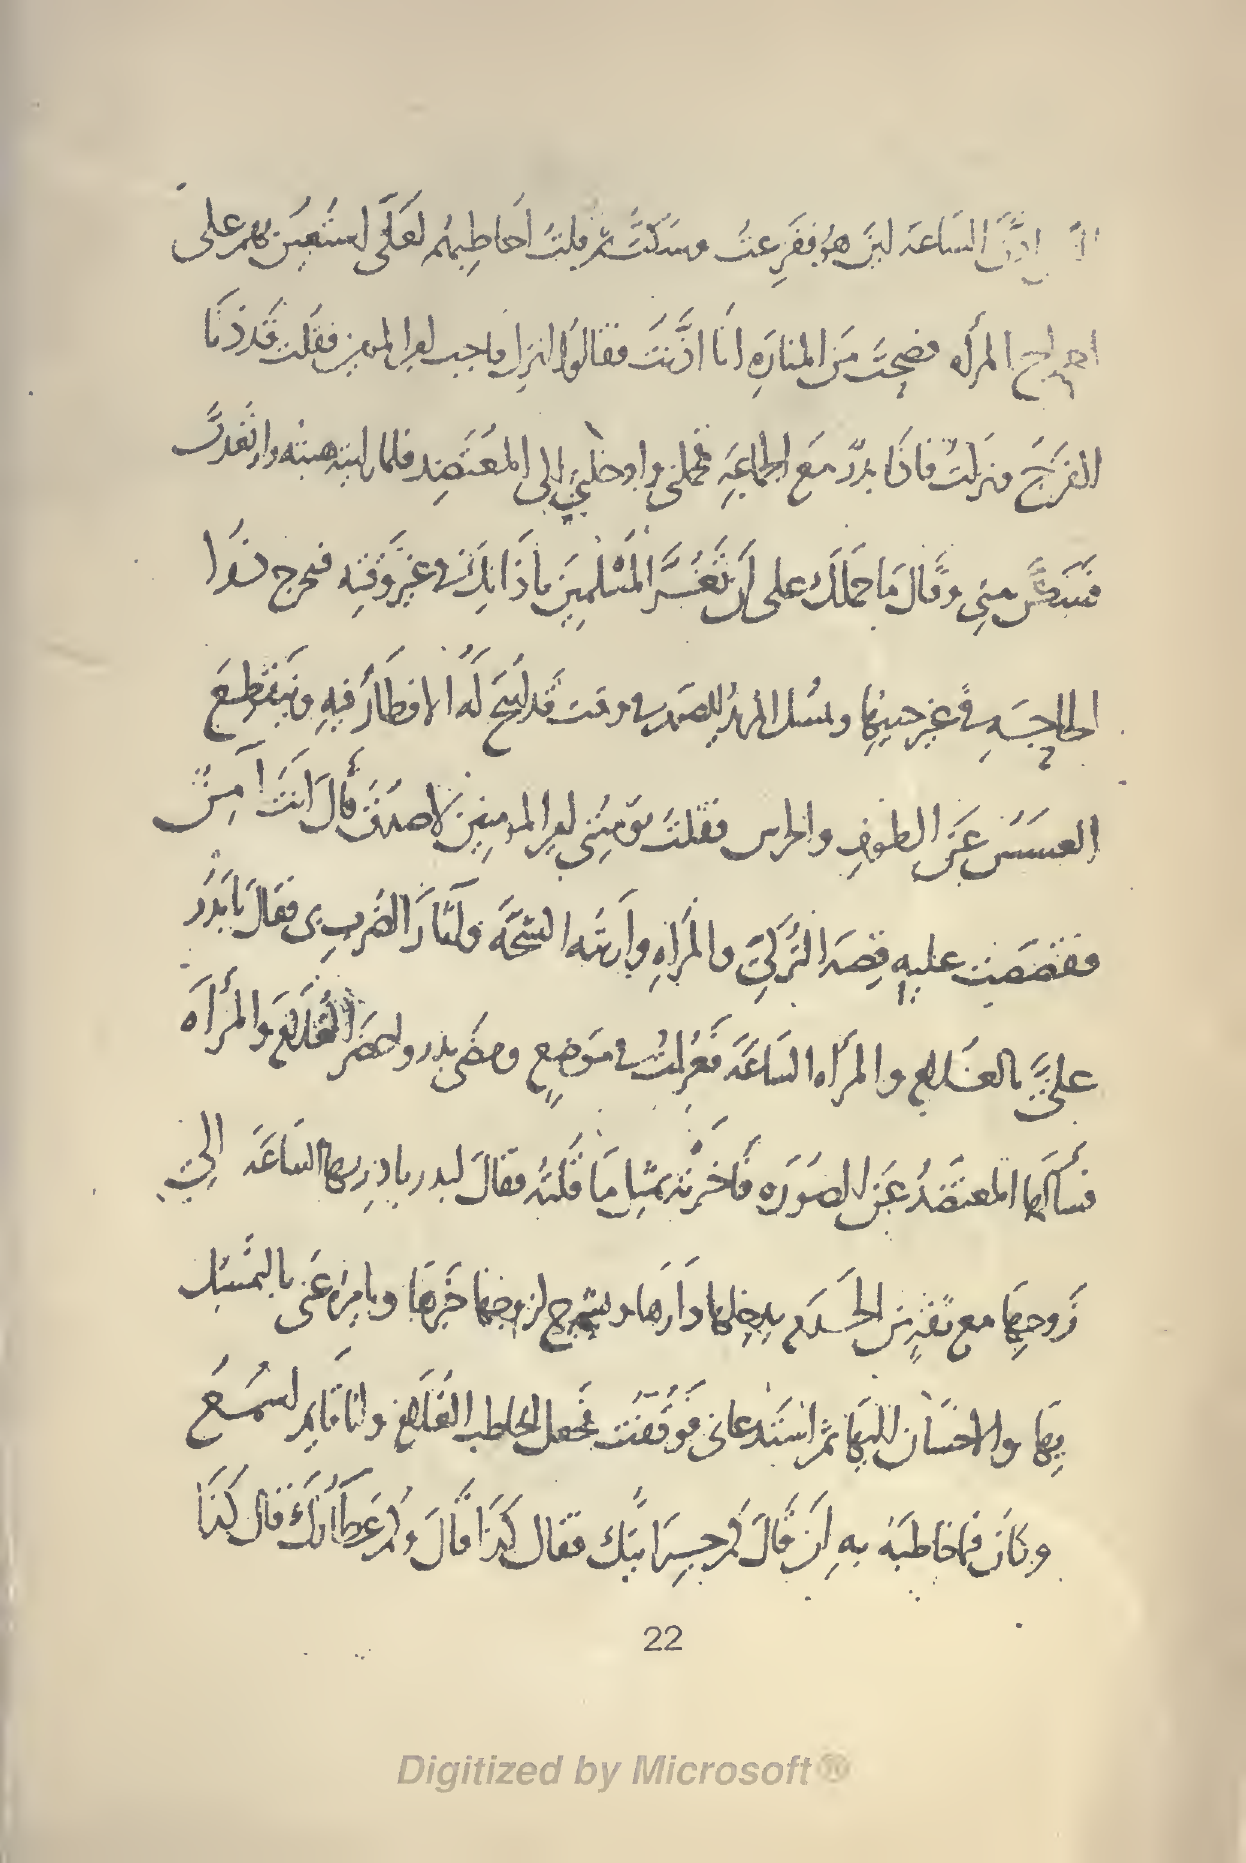 اذن الساعه اين هو ففزعت وسكت ثم قلت اخاطبهم لعلي استعين بهم على
اخراج المرأه فصحت من المناره انا اذنت فقالوا انزل فاجب امير المومنين فقلت قد دنا
الفرج ونزلت فاذا بدر مع الجماعه فحملني وادخلني الى المعتضد فلما رايته هبته وارتعدت
فسكن مني وقال ما حملك على ان تغر المسلمين باذانك في غير وقته فيخرج ذوا
الحاجه في غير حينها ويمسك المريد للصوم في وقت قد ابيح له الافطار فيه وينقطع
العسس عن الطوف والحرس فقلت يومنني امير المومنين لاصدق قال انت آمن
فقصصت عليه قصه التركي والمراه واريته الشجه وآثار الضرب بي فقال يا بدر
علي بالغلام والمرأه الساعه فعزلت في موضع ومضى بدر واحضر الغلام والمرأه
فسألها المعتضد عن الصوره فاخبرته بمثل ما قلته فقال لبدر بادر بها الساعه الى
زوجها مع ثقه من الخدم يدخلها دارها ويشرح لزوجها خبرها ويامره عني بالتمسك
بها والاحسان اليها ثم استدعاني فوقفت فجعل يخاطب الغلام وانا قايم اسمع
وكان فيما خاطبه به ان قال كم جرايتك فقال كذا قال وكم عطاؤك قال كذا
22
Digitized by Microsoft®